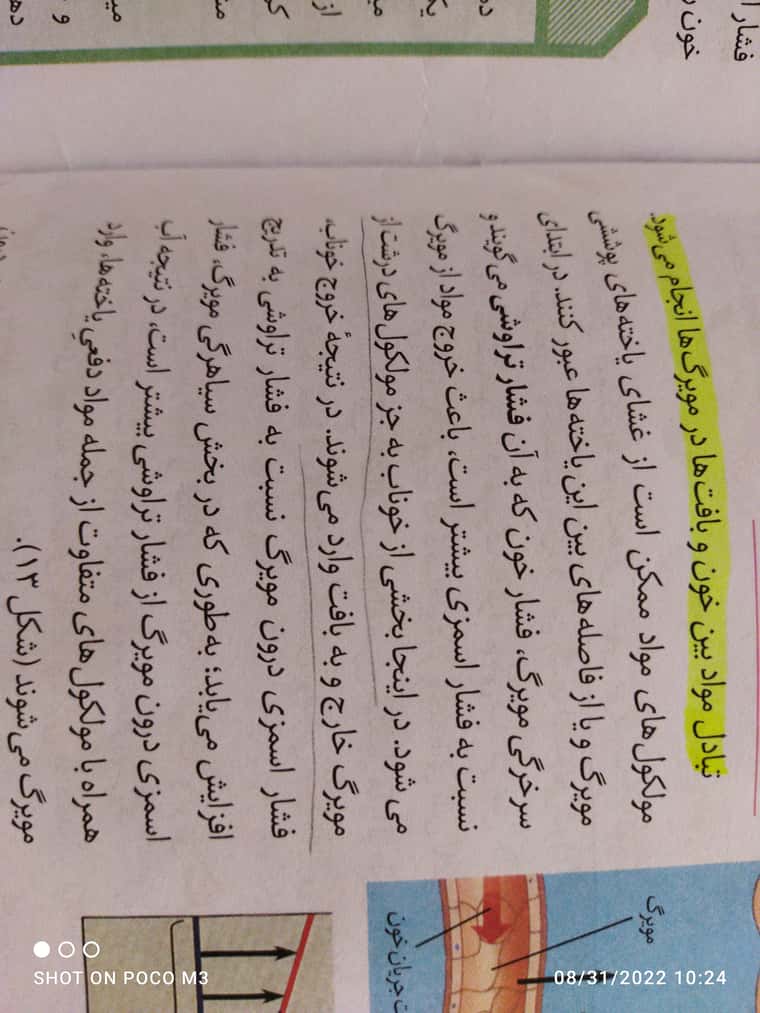 فشار
خون
تبادل مواد بین خون و بافت‌ها در مویرگ‌ها انجام می‌شود.
مولکول‌های مواد ممکن است از غشای یاخته‌های پوششی
مویرگ و یا از فاصله‌های بین این یاخته‌ها عبور کنند. در ابتدای
سرخرگی مویرگ، فشار خون که به آن فشار تراوشی می‌گویند و
نسبت به فشار اسمزی بیشتر است، باعث خروج مواد از مویرگ
می‌شود. در اینجا بخشی از خوناب به جز مولکول‌های درشت از
مویرگ خارج و به بافت وارد می‌شوند. در نتیجهٔ خروج خوناب،
فشار اسمزی درون مویرگ نسبت به فشار تراوشی به تدریج
افزایش می‌یابد؛ به‌طوری که در بخش سیاهرگی مویرگ، فشار
اسمزی درون مویرگ از فشار تراوشی بیشتر است، در نتیجه آب
همراه با مولکول‌های متفاوت از جمله مواد دفعیِ یاخته‌ها، وارد
مویرگ می‌شوند (شکل ۱۳).
مویرگ
جریان خون
SHOT ON POCO M3
08/31/2022 10:24